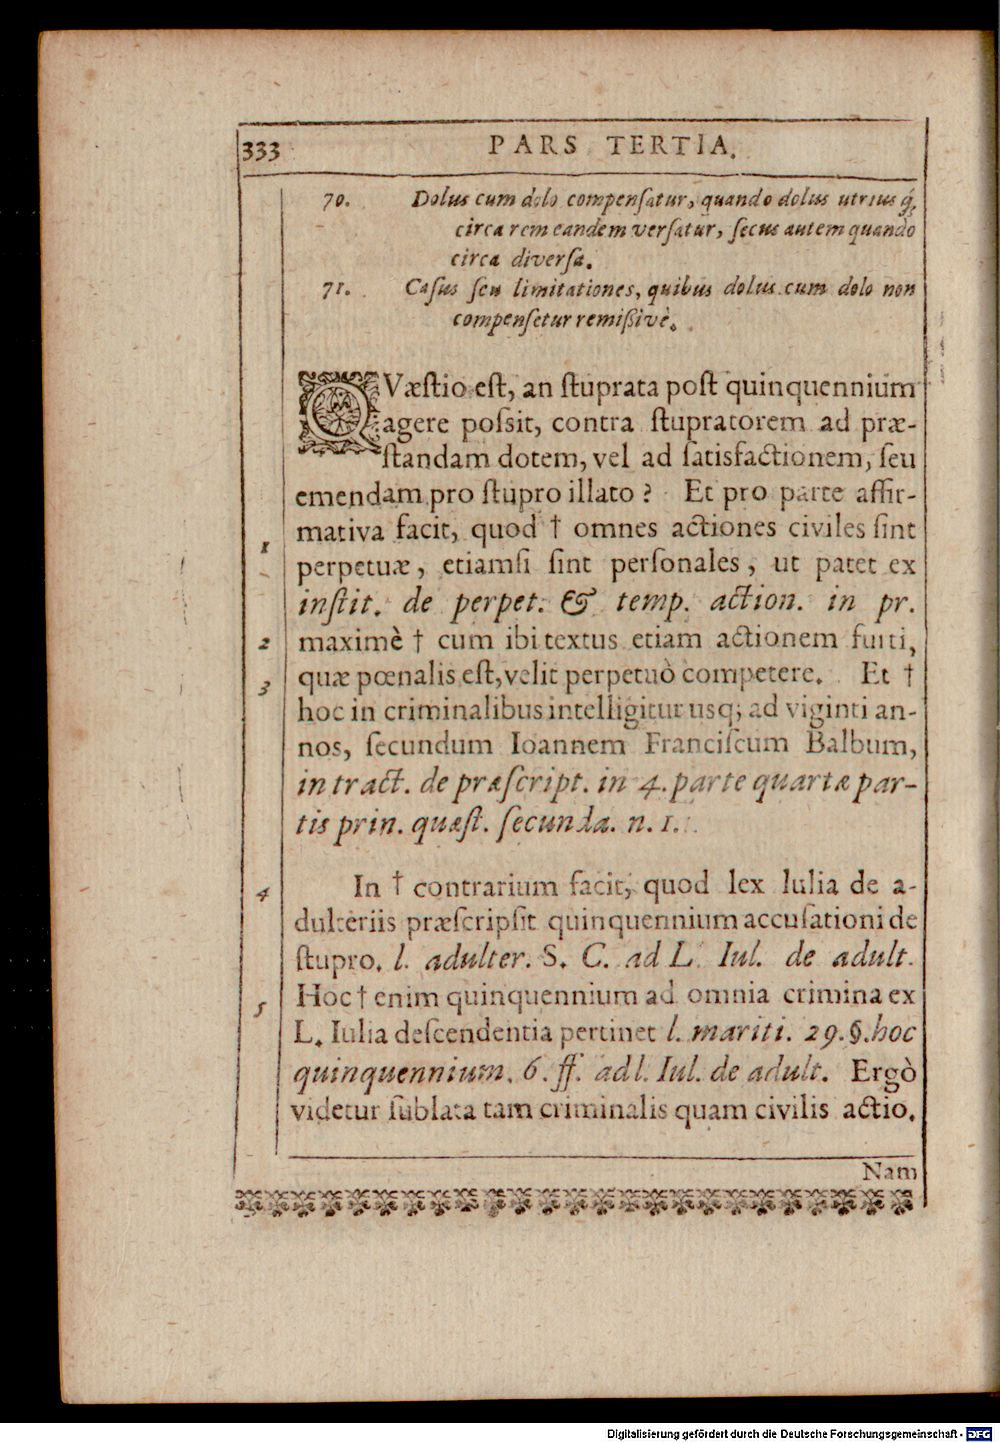 333 PARS TERTIA.
70. Dolus cum dolo compenſatur, quando dolus utriusq́;
circa rem eandem verſatur, ſecus autem quando
circa diverſa.
71. Caſus ſeu limitationes, quibus dolus cum dolo non
compenſetur remiſsivè.
QVæſtio eſt, an ſtuprata poſt quinquennium
agere poſsit, contra ſtupratorem ad præ-
ſtandam dotem, vel ad ſatisfactionem, ſeu
emendam pro ſtupro illato? Et pro parte affir-
mativa facit, quod † omnes actiones civiles ſint
1
perpetuæ, etiamſi ſint perſonales, ut patet ex
inſtit. de perpet. & temp. action. in pr.
2 maximè † cum ibi textus etiam actionem furti,
3 quæ pœnalis eſt, velit perpetuò competere. Et †
hoc in criminalibus intelligitur usq; ad viginti an-
nos, ſecundum Ioannem Franciſcum Balbum,
in tract. de præſcript. in 4. parte quartæ par-
tis prin. quæſt. ſecunda. n. 1.
4 In † contrarium facit, quod lex Iulia de a-
dulteriis præſcripſit quinquennium accuſationi de
ſtupro. l. adulter. S. C. ad L. Iul. de adult.
5 Hoc † enim quinquennium ad omnia crimina ex
L. Iulia deſcendentia pertinet l. mariti. 29. §. hoc
quinquennium. 6. ff. ad l. Iul. de adult. Ergò
videtur ſublata tam criminalis quam civilis actio.
Nam
Digitalisierung gefördert durch die Deutsche Forschungsgemeinschaft - DFG